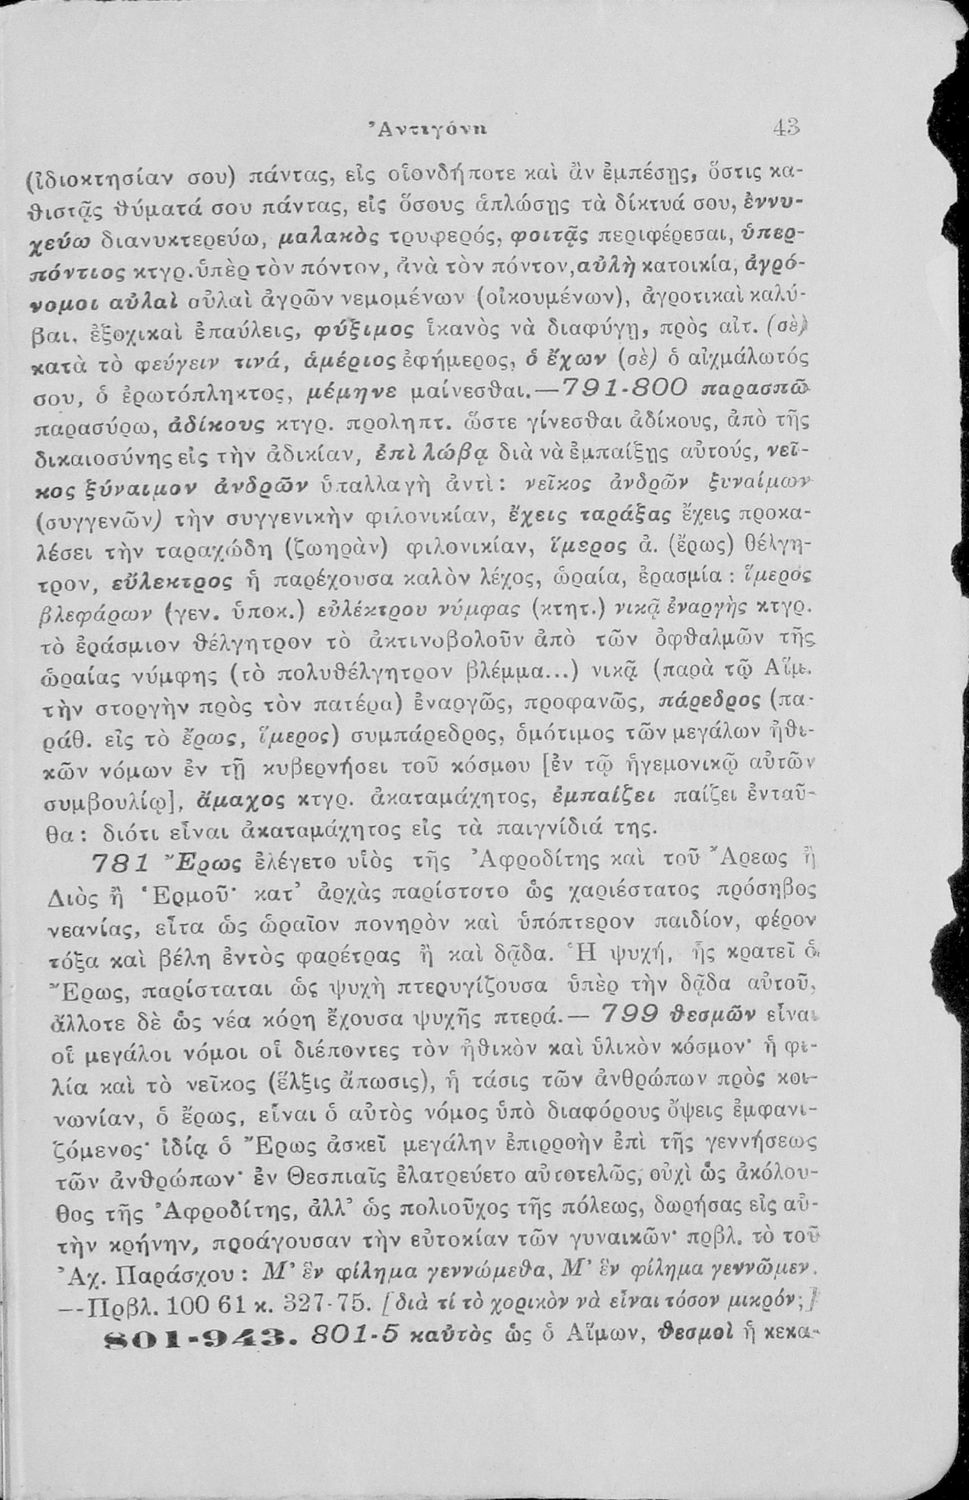 Ἀντιγόνη 43
(ἰδιοκτησίαν σου) πάντας, εἰς οἱονδήποτε καὶ ἂν ἐμπέσῃς, ὅστις κα-
θιστᾷς θύματά σου πάντας, εἰς ὅσους ἁπλώσῃς τὰ δίκτυά σου, ἐννυ-
χεύω διανυκτερεύω, μαλακὸς τρυφερός, φοιτᾷς περιφέρεσαι, ὑπερ-
πόντιος κτγρ. ὑπὲρ τὸν πόντον, ἀνὰ τὸν πόντον, αὐλὴ κατοικία, ἀγρό-
νομοι αὐλαὶ αὐλαὶ ἀγρῶν νεμομένων (οἰκουμένων), ἀγροτικαὶ καλύ-
βαι, ἐξοχικαὶ ἐπαύλεις, φύξιμος ἱκανὸς νὰ διαφύγῃ, πρὸς αἰτ. (σὲ)
κατὰ τὸ φεύγειν τινά, ἁμέριος ἐφήμερος, ὁ ἔχων (σὲ) ὁ αἰχμάλωτός
σου, ὁ ἐρωτόπληκτος, μέμηνε μαίνεσθαι.—791-800 παρασπῶ
παρασύρω, ἀδίκους κτγρ. προληπτ. ὥστε γίνεσθαι ἀδίκους, ἀπὸ τῆς
δικαιοσύνης εἰς τὴν ἀδικίαν, ἐπὶ λώβᾳ διὰ νὰ ἐμπαίξῃς αὐτούς, νεῖ-
κος ξύναιμον ἀνδρῶν ὑπαλλαγὴ ἀντὶ: νεῖκος ἀνδρῶν ξυναίμων
(συγγενῶν) τὴν συγγενικὴν φιλονικίαν, ἔχεις ταράξας ἔχεις προκα-
λέσει τὴν ταραχώδη (ζωηρὰν) φιλονικίαν, ἵμερος ἀ. (ἔρως) θέλγη-
τρον, εὔλεκτρος ἡ παρέχουσα καλὸν λέχος, ὡραία, ἐρασμία : ἵμερος
βλεφάρων (γεν. ὑποκ.) εὐλέκτρου νύμφας (κτητ.) νικᾷ ἐναργὴς κτγρ.
τὸ ἐράσμιον θέλγητρον τὸ ἀκτινοβολοῦν ἀπὸ τῶν ὀφθαλμῶν τῆς
ὡραίας νύμφης (τὸ πολυθέλγητρον βλέμμα...) νικᾷ (παρὰ τῷ Αἵμ.
τὴν στοργὴν πρὸς τὸν πατέρα) ἐναργῶς, προφανῶς, πάρεδρος (πα-
ράθ. εἰς τὸ ἔρως, ἵμερος) συμπάρεδρος, ὁμότιμος τῶν μεγάλων ἠθι-
κῶν νόμων ἐν τῇ κυβερνήσει τοῦ κόσμου [ἐν τῷ ἡγεμονικῷ αὐτῶν
συμβουλίῳ], ἄμαχος κτγρ. ἀκαταμάχητος, ἐμπαίζει παίζει ἐνταῦ-
θα : διότι εἶναι ἀκαταμάχητος εἰς τὰ παιγνίδιά της.
781 Ἔρως ἐλέγετο υἱὸς τῆς Ἀφροδίτης καὶ τοῦ Ἄρεως ἢ
Διὸς ἢ Ἑρμοῦ· κατ' ἀρχὰς παρίστατο ὡς χαριέστατος πρόσηβος
νεανίας, εἶτα ὡς ὡραῖον πονηρὸν καὶ ὑπόπτερον παιδίον, φέρον
τόξα καὶ βέλη ἐντὸς φαρέτρας ἢ καὶ δᾷδα. Ἡ ψυχή, ἧς κρατεῖ ὁ
Ἔρως, παρίσταται ὡς ψυχὴ πτερυγίζουσα ὑπὲρ τὴν δᾷδα αὐτοῦ,
ἄλλοτε δὲ ὡς νέα κόρη ἔχουσα ψυχῆς πτερά.— 799 θεσμῶν εἶναι
οἱ μεγάλοι νόμοι οἱ διέποντες τὸν ἠθικὸν καὶ ὑλικὸν κόσμον· ἡ φι-
λία καὶ τὸ νεῖκος (ἕλξις ἄπωσις), ἡ τάσις τῶν ἀνθρώπων πρὸς κοι-
νωνίαν, ὁ ἔρως, εἶναι ὁ αὐτὸς νόμος ὑπὸ διαφόρους ὄψεις ἐμφανι-
ζόμενος· ἰδίᾳ ὁ Ἔρως ἀσκεῖ μεγάλην ἐπιρροὴν ἐπὶ τῆς γεννήσεως
τῶν ἀνθρώπων· ἐν Θεσπιαῖς ἐλατρεύετο αὐτοτελῶς, οὐχὶ ὡς ἀκόλου-
θος τῆς Ἀφροδίτης, ἀλλ' ὡς πολιοῦχος τῆς πόλεως, δωρήσας εἰς αὐ-
τὴν κρήνην, προάγουσαν τὴν εὐτοκίαν τῶν γυναικῶν· πρβλ. τὸ τοῦ
Ἀχ. Παράσχου : Μ' ἓν φίλημα γεννώμεθα, Μ' ἓν φίλημα γεννῶμεν.
—Πρβλ. 100 61 κ. 327-75. [διὰ τί τὸ χορικὸν νὰ εἶναι τόσον μικρόν;]
801-943. 801-5 καὐτὸς ὡς ὁ Αἵμων, θεσμοὶ ἡ κεκα-